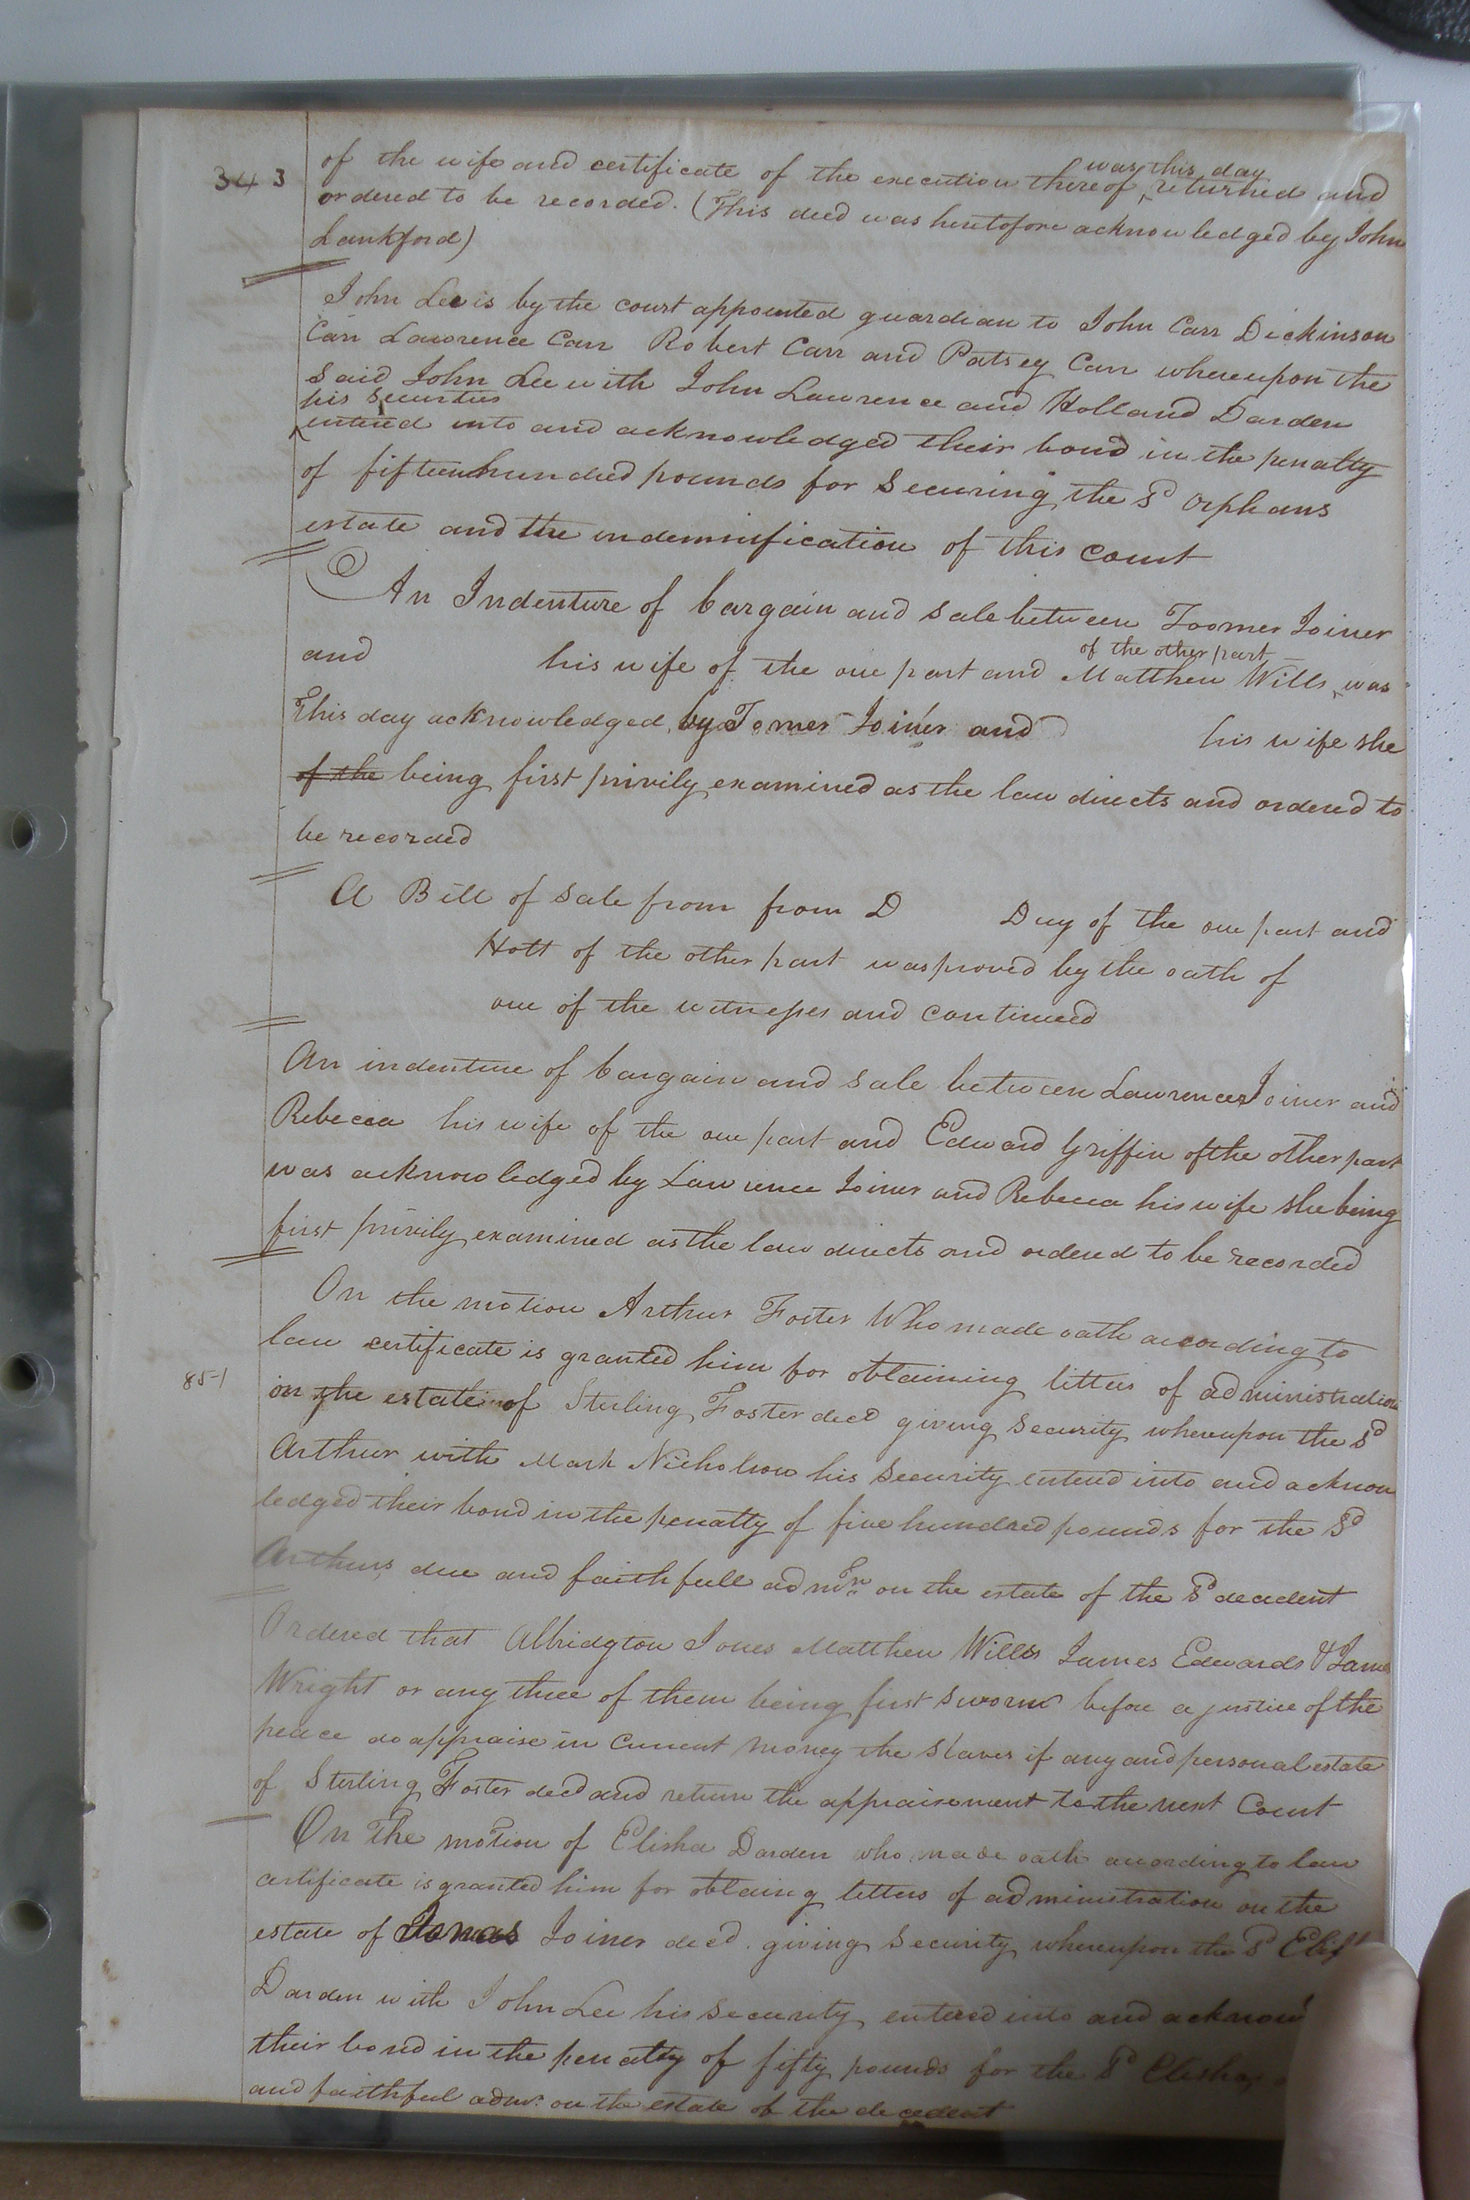 343
of the wife and certificate of the execution thereof was this day returned and
ordered to be recorded. (This deed was heretofore acknowledged by John
Lankford)
John Lee is by the court appointed guardian to John Carr Dickinson
Carr Lawrence Carr Robert Carr and Patsey Carr whereupon the
said John Lee with John Lawrence and Holland Darden
his securities
entered into and acknowledged their bond in the penalty
of fifteen hundred pounds for securing the sd orphans
estate and the indemnification of this court
An Indenture of bargain and sale between Toomer Joiner
and his wife of the one part and Matthew Wills of the other part was
this day acknowledged by Tomer Joiner and his wife she
of the being first privily examined as the law directs and ordered to
be recorded
A Bill of sale from from D Day of the one part and
Hott of the other part was proved by the oath of
one of the witnesses and continued
An indenture of bargain and sale between Lawrence Joiner and
Rebecca his wife of the one part and Edward Griffin of the other part
was acknowledged by Lawrence Joiner and Rebecca his wife she being
first privily examined as the law directs and ordered to be recorded
On the motion Arthur Foster Who made oath according to
law certificate is granted him for obtaining letters of administration
85-1
on the estate of Sterling Foster decd giving security whereupon the sd
Arthur with Mark Nicholson his security entered into and acknow
ledged their bond in the penalty of five hundred pounds for the sd
Arthurs due and faithfull admrn on the estate of the sd decedent
Ordered that Albridgton Jones Matthew Wills James Edwards & James
Wright or any three of them being first sworn before a justice of the
peace do appraise in current money the slaves if any and personal estate
of Sterling Foster decd and return the appraisement to the next Court
On The motion of Elisha Darden who made oath according to law
certificate is granted him for obtaing letters of administration on the
estate of Jonas Joiner decd. giving security whereupon the sd Elish
Darden with John Lee his security entered into and acknow
their bond in the penalty of fifty pounds for the sd Elisha
and faithful admr. on the estate of the decedent